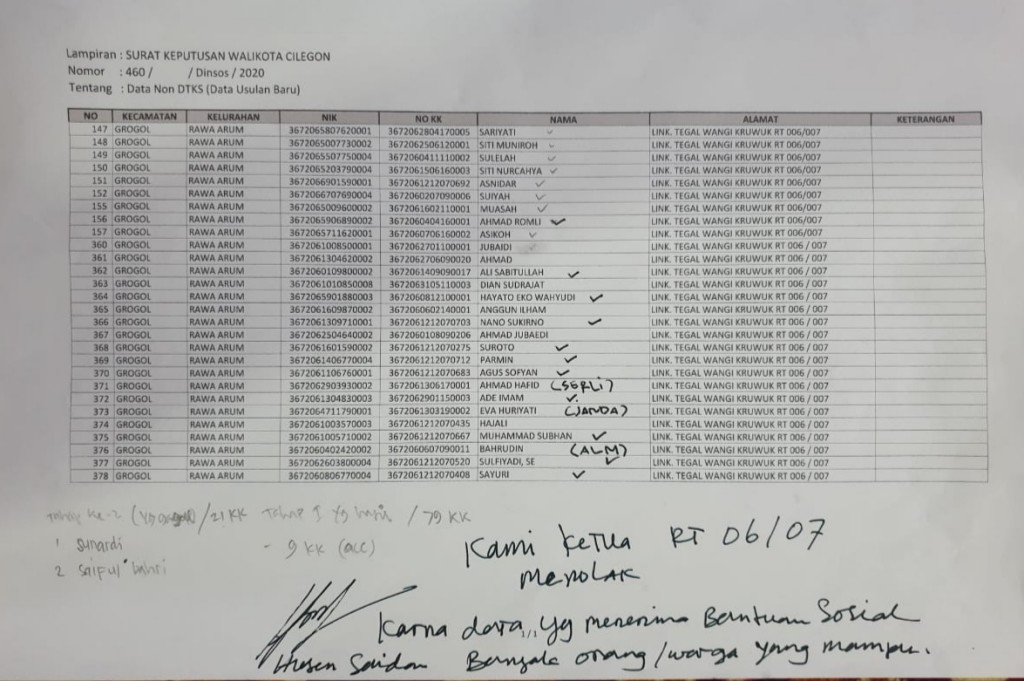 Lampiran : SURAT KEPUTUSAN WALIKOTA CILEGON
Nomor : 460 / / Dinsos / 2020
Tentang : Data Non DTKS (Data Usulan Baru)
NO KECAMATAN KELURAHAN NIK NO KK NAMA ALAMAT KETERANGAN
147 GROGOL RAWA ARUM 3672065807620001 3672062804170005 SARIYATI ✓ LINK. TEGAL WANGI KRUWUK RT 006/007
148 GROGOL RAWA ARUM 3672065007730002 3672062506120001 SITI MUNIROH ✓ LINK. TEGAL WANGI KRUWUK RT 006/007
149 GROGOL RAWA ARUM 3672065507750004 3672060411110002 SULELAH ✓ LINK. TEGAL WANGI KRUWUK RT 006/007
150 GROGOL RAWA ARUM 3672065203790004 3672061506160003 SITI NURCAHYA ✓ LINK. TEGAL WANGI KRUWUK RT 006/007
151 GROGOL RAWA ARUM 3672066901590001 3672061212070692 ASNIDAR ✓ LINK. TEGAL WANGI KRUWUK RT 006/007
152 GROGOL RAWA ARUM 3672066707690004 3672060207090006 SUIYAH ✓ LINK. TEGAL WANGI KRUWUK RT 006/007
155 GROGOL RAWA ARUM 3672065009600002 3672061602110001 MUASAH ✓ LINK. TEGAL WANGI KRUWUK RT 006/007
156 GROGOL RAWA ARUM 3672065906890002 3672060404160001 AHMAD ROMLI ✓ LINK. TEGAL WANGI KRUWUK RT 006/007
157 GROGOL RAWA ARUM 3672065711620001 3672060706160002 ASIKOH ✓ LINK. TEGAL WANGI KRUWUK RT 006/007
360 GROGOL RAWA ARUM 3672061008500001 3672062701100001 JUBAIDI ✓ LINK. TEGAL WANGI KRUWUK RT 006 / 007
361 GROGOL RAWA ARUM 3672061304620002 3672062706090020 AHMAD LINK. TEGAL WANGI KRUWUK RT 006 / 007
362 GROGOL RAWA ARUM 3672060109800002 3672061409090017 ALI SABITULLAH ✓ LINK. TEGAL WANGI KRUWUK RT 006 / 007
363 GROGOL RAWA ARUM 3672061010850008 3672063105110003 DIAN SUDRAJAT LINK. TEGAL WANGI KRUWUK RT 006 / 007
364 GROGOL RAWA ARUM 3672065901880003 3672060812100001 HAYATO EKO WAHYUDI ✓ LINK. TEGAL WANGI KRUWUK RT 006 / 007
365 GROGOL RAWA ARUM 3672061609870002 3672060602140001 ANGGUN ILHAM LINK. TEGAL WANGI KRUWUK RT 006 / 007
366 GROGOL RAWA ARUM 3672061309710001 3672061212070703 NANO SUKIRNO ✓ LINK. TEGAL WANGI KRUWUK RT 006 / 007
367 GROGOL RAWA ARUM 3672062504640002 3672060108090206 AHMAD JUBAEDI LINK. TEGAL WANGI KRUWUK RT 006 / 007
368 GROGOL RAWA ARUM 3672061601590002 3672061212070275 SUROTO ✓ LINK. TEGAL WANGI KRUWUK RT 006 / 007
369 GROGOL RAWA ARUM 3672061406770004 3672061212070712 PARMIN ✓ LINK. TEGAL WANGI KRUWUK RT 006 / 007
370 GROGOL RAWA ARUM 3672061106760001 3672061212070683 AGUS SOFYAN ✓ LINK. TEGAL WANGI KRUWUK RT 006 / 007
371 GROGOL RAWA ARUM 3672062903930002 3672061306170001 AHMAD HAFID (SERLI) LINK. TEGAL WANGI KRUWUK RT 006 / 007
372 GROGOL RAWA ARUM 3672061304830003 3672062901150003 ADE IMAM ✓ LINK. TEGAL WANGI KRUWUK RT 006 / 007
373 GROGOL RAWA ARUM 3672064711790001 3672061303190002 EVA HURIYATI (JANDA) LINK. TEGAL WANGI KRUWUK RT 006 / 007
374 GROGOL RAWA ARUM 3672061003570003 3672061212070435 HAJALI LINK. TEGAL WANGI KRUWUK RT 006 / 007
375 GROGOL RAWA ARUM 3672061005710002 3672061212070667 MUHAMMAD SUBHAN ✓ LINK. TEGAL WANGI KRUWUK RT 006 / 007
376 GROGOL RAWA ARUM 3672060402420002 3672060607090011 BAHRUDIN (ALM) LINK. TEGAL WANGI KRUWUK RT 006 / 007
377 GROGOL RAWA ARUM 3672062603800004 3672061212070520 SULFIYADI, SE ✓ LINK. TEGAL WANGI KRUWUK RT 006 / 007
378 GROGOL RAWA ARUM 3672060806770004 3672061212070408 SAYURI ✓ LINK. TEGAL WANGI KRUWUK RT 006 / 007
Tahap Ke-2 /21 KK Tahap I yg / 79 KK
1 Sunardi - 9 KK (acc)
2 Saiful bahri
Kami Ketua RT 06/07
Menolak
Karna data,, yg menerima Bantuan Sosial
Husen Saidan Banyak orang/warga yang mampu.